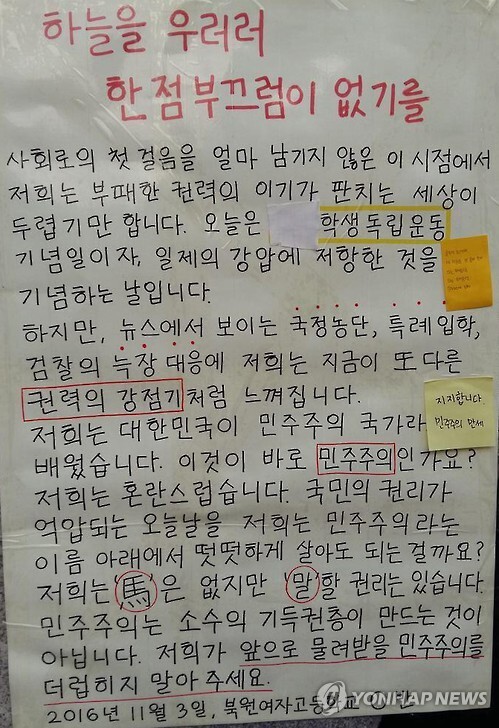 하늘을 우러러
한 점 부끄럼이 없기를
사회로의 첫 걸음을 얼마 남기지 않은 이 시점에서
저희는 부패한 권력의 이기가 판치는 세상이
두렵기만 합니다. 오늘은 학생독립운동
기념일이자, 일제의 강압에 저항한 것을
기념하는 날입니다.
하지만, 뉴스에서 보이는 국정농단, 특례입학,
검찰의 늑장 대응에 저희는 지금이 또 다른
권력의 강점기처럼 느껴집니다.
지지합니다.
민주주의 만세
저희는 대한민국이 민주주의 국가라
배웠습니다. 이것이 바로 민주주의인가요?
저희는 혼란스럽습니다. 국민의 권리가
억압되는 오늘날을 저희는 민주주의라는
이름 아래에서 떳떳하게 살아도 되는걸까요?
저희는 '馬'은 없지만 '말'할 권리는 있습니다.
민주주의는 소수의 기득권층이 만드는 것이
아닙니다. 저희가 앞으로 물려받을 민주주의를
더럽히지 말아 주세요.
2016년 11월 3일, 북원여자고등학교
YONHAP NEWS